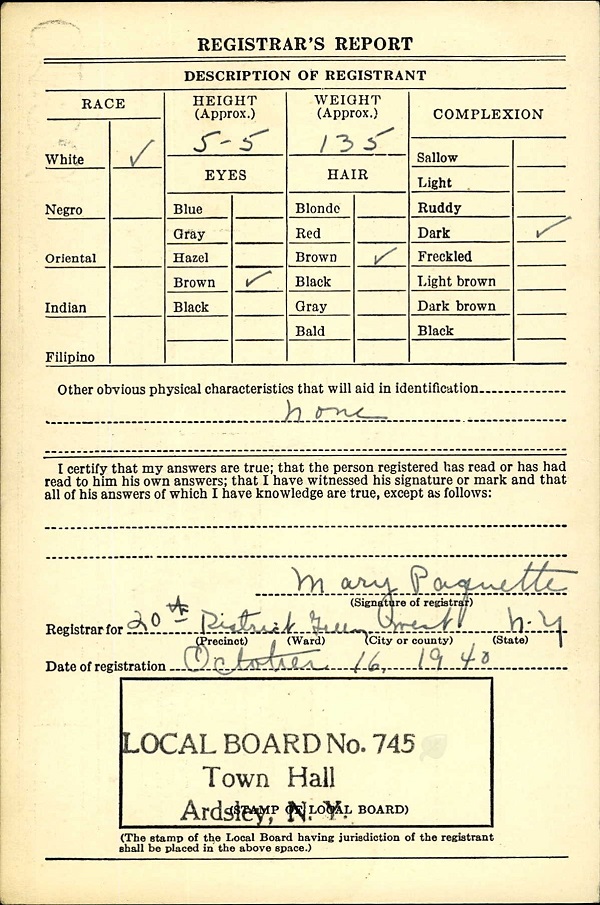 REGISTRAR'S REPORT
DESCRIPTION OF REGISTRANT
RACE
HEIGHT
(Approx.)
WEIGHT
(Approx.)
COMPLEXION
5-5
135
White ✓
EYES
HAIR
Sallow
Light
Negro
Blue
Blonde
Ruddy
Gray
Red
Dark ✓
Oriental
Hazel
Brown ✓
Freckled
Brown ✓
Black
Light brown
Indian
Black
Gray
Dark brown
Bald
Black
Filipino
Other obvious physical characteristics that will aid in identification
none
I certify that my answers are true; that the person registered has read or has had
read to him his own answers; that I have witnessed his signature or mark and that
all of his answers of which I have knowledge are true, except as follows:
Mary Paquette
(Signature of registrar)
Registrar for 20th District West N.Y
(Precinct) (Ward) (City or county) (State)
Date of registration October 16, 1940
LOCAL BOARD No. 745
Town Hall
Ardsley, N. Y.
(STAMP OF LOCAL BOARD)
(The stamp of the Local Board having jurisdiction of the registrant
shall be placed in the above space.)